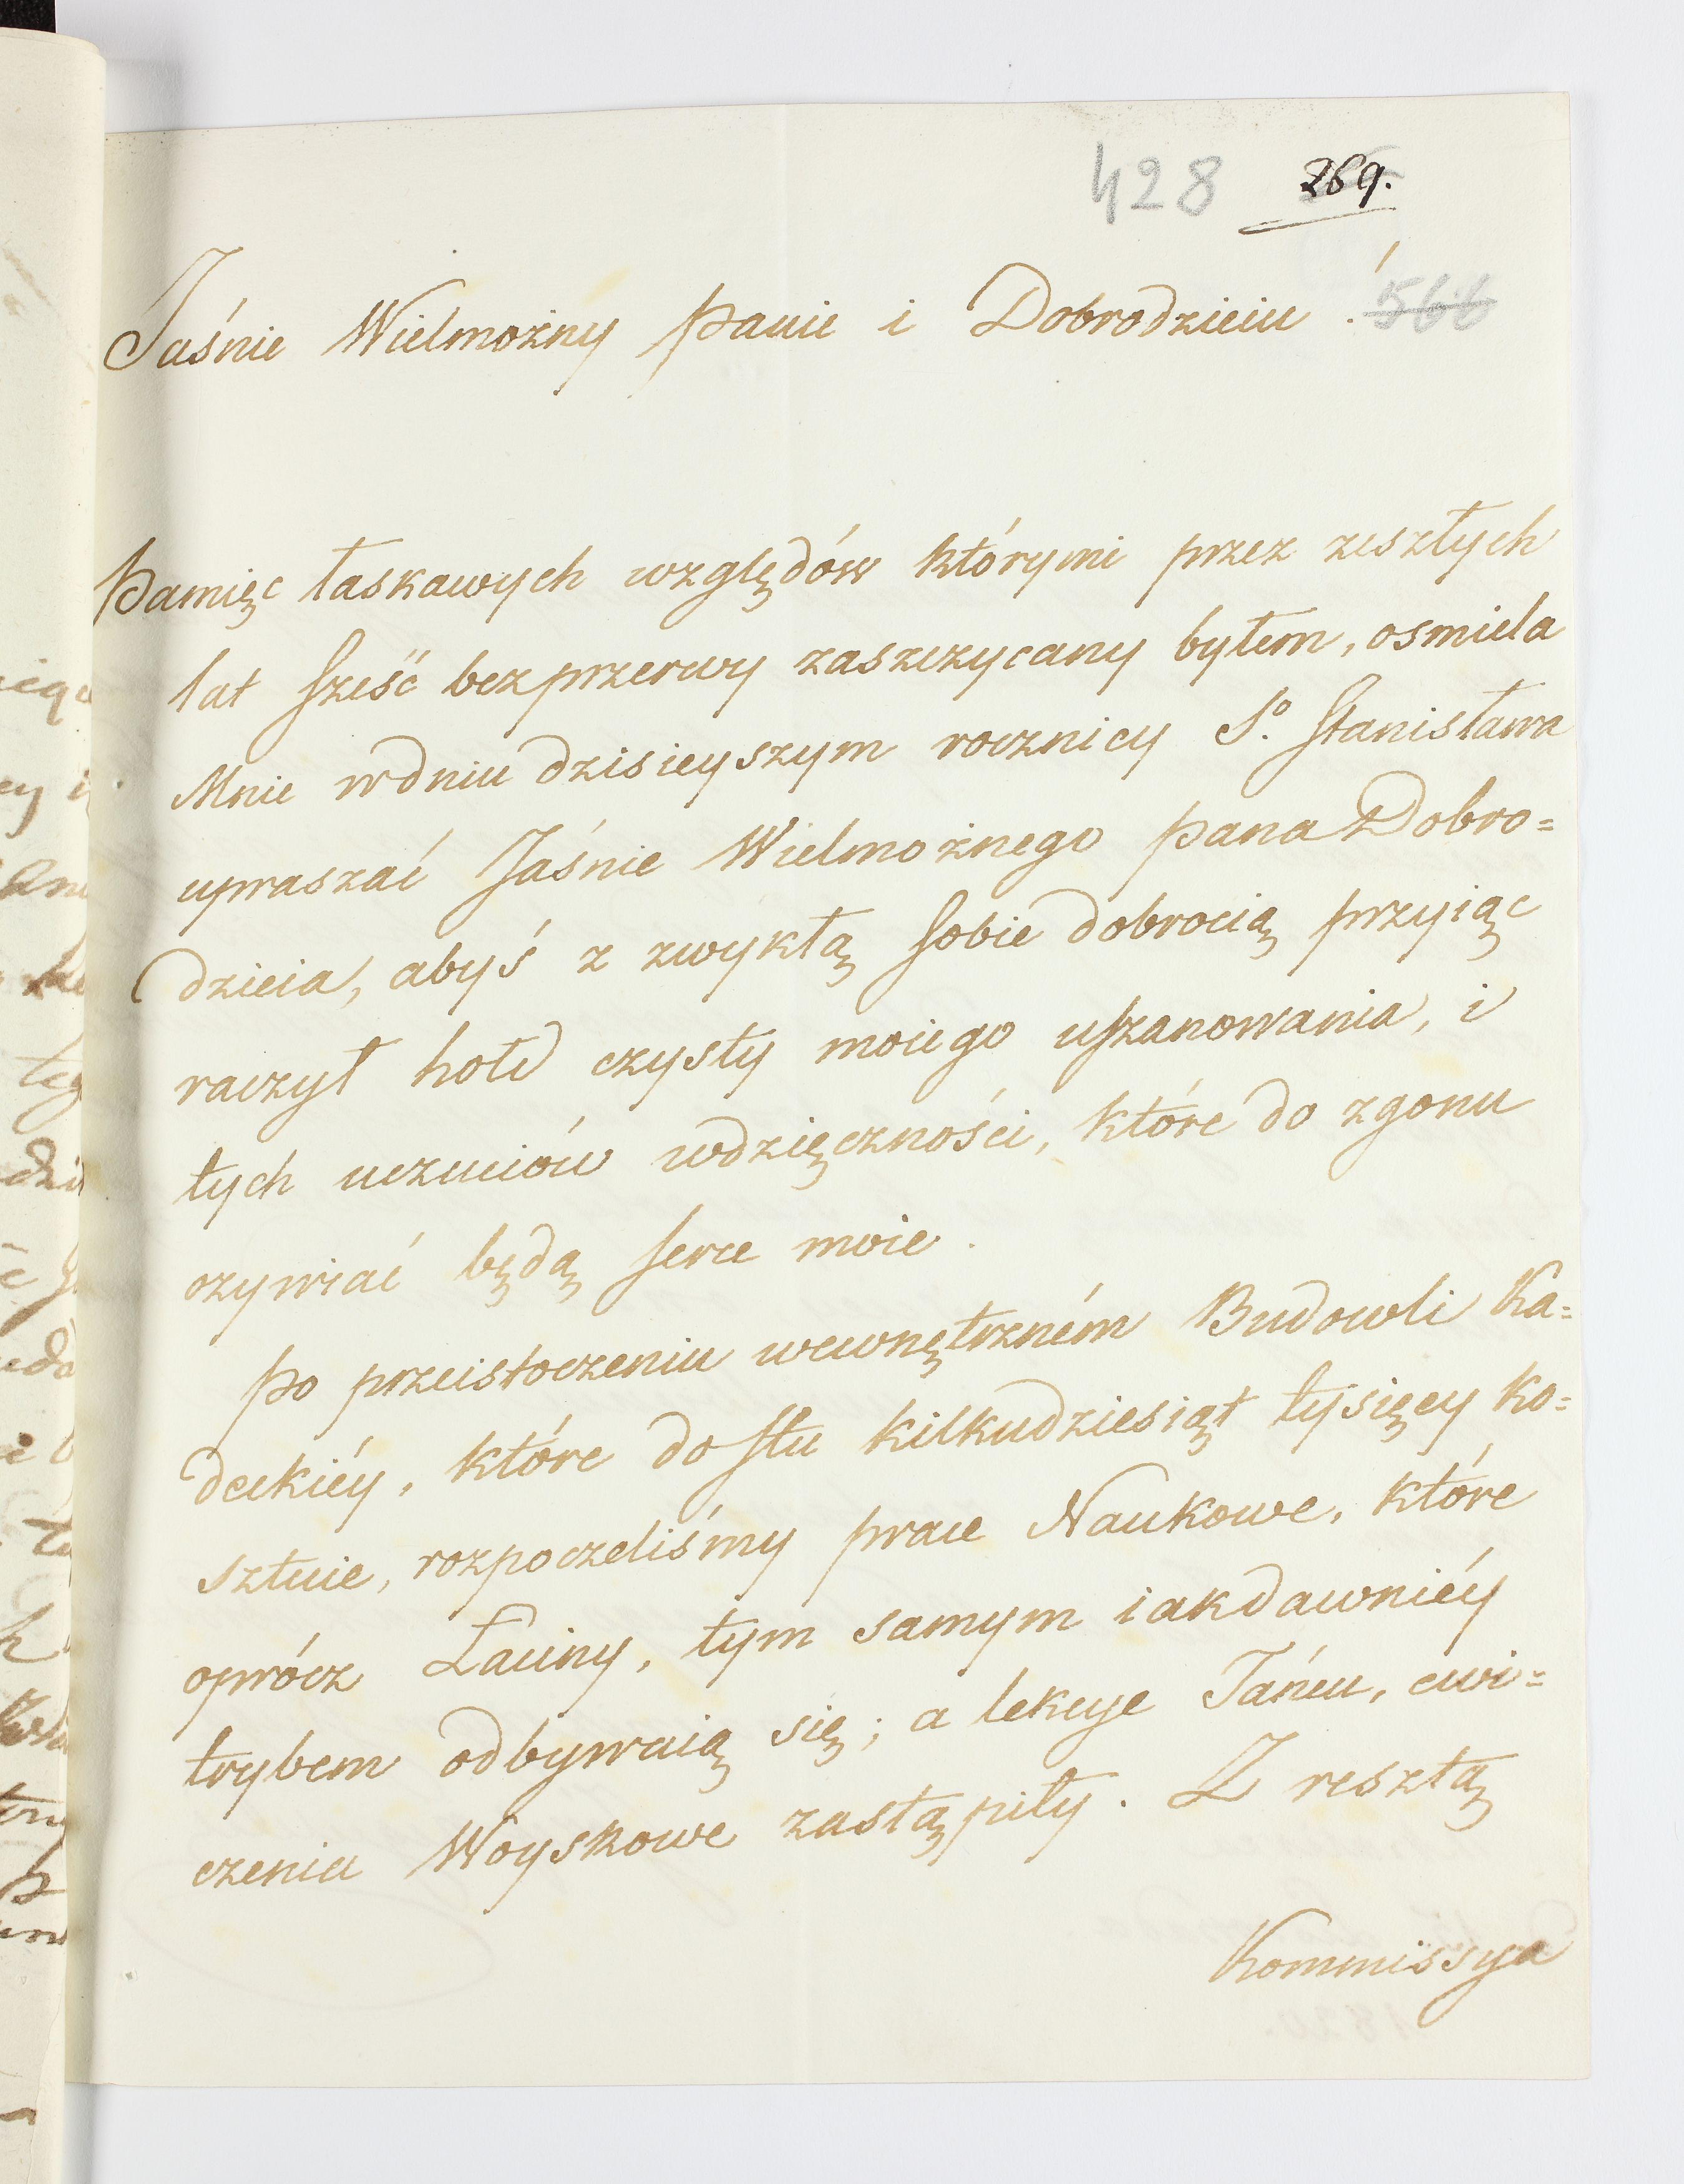 428 269.
Jaśnie Wielmożny Panie i Dobrodzieiu! 566
Pamięc łaskawych względów którymi przez zeszłych
lat sześć bezprzerwy zaszczycany byłem, osmiela
Mnie wdniu dzisieyszym rocznicy So. Stanisława
upraszać Jaśnie Wielmożnego Pana Dobro=
dzieia, abyś z zwykłą sobie dobrocią przyiąc
raczył hołd czysty moiego uszanowania, i
tych uczuciów wdzięczności, które do zgonu
ozywiać będą serce moie.
Po przeistoczeniu wewnętrzném Budowli Ka=
deckiéy, które do stu kilkudziesiąt tysięcy ko=
sztuie, rozpoczeliśmy prace Naukowe, które
oprócz Łaciny, tym samym iakdawniéy
trybem odbywaią się; a lekcye Tańcu, cwi=
czenia Woyskowe zastąpiły. Z resztą
Kommissya